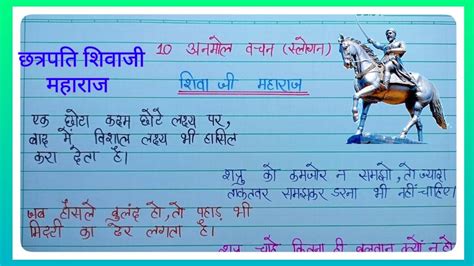 छत्रपति शिवाजी
महाराज
10 अनमोल वचन (स्लोगन)
शिवा जी महाराज
एक छोटा कदम छोटे लक्ष्य पर,
बाद में विशाल लक्ष्य भी हासिल
करा देता है।
शत्रु को कमजोर न समझो, तो ज्यादा
ताकतवर समझकर डरना भी नहीं चाहिए।
जब हौसले बुलंद हो, तो पहाड़ भी
मिट्टी का ढेर लगता है।
शत्रु चाहे कितना ही बलवान क्यों न हो